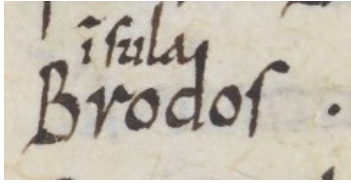 īſula
Brodoſ .